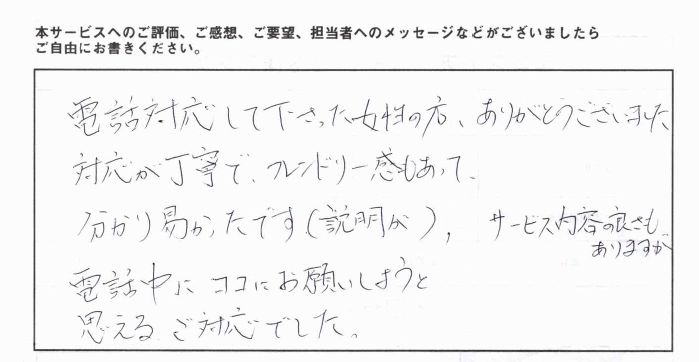 本サービスへのご評価、ご感想、ご要望、担当者へのメッセージなどがございましたら
ご自由にお書きください。
電話対応して下さった女性の方、ありがとうございました
対応が丁寧で、フレンドリー感もあって、
分かり易かったです(説明が)、サービス内容の良さも
ありますが
電話中にココにお願いしようと
思えるご対応でした。